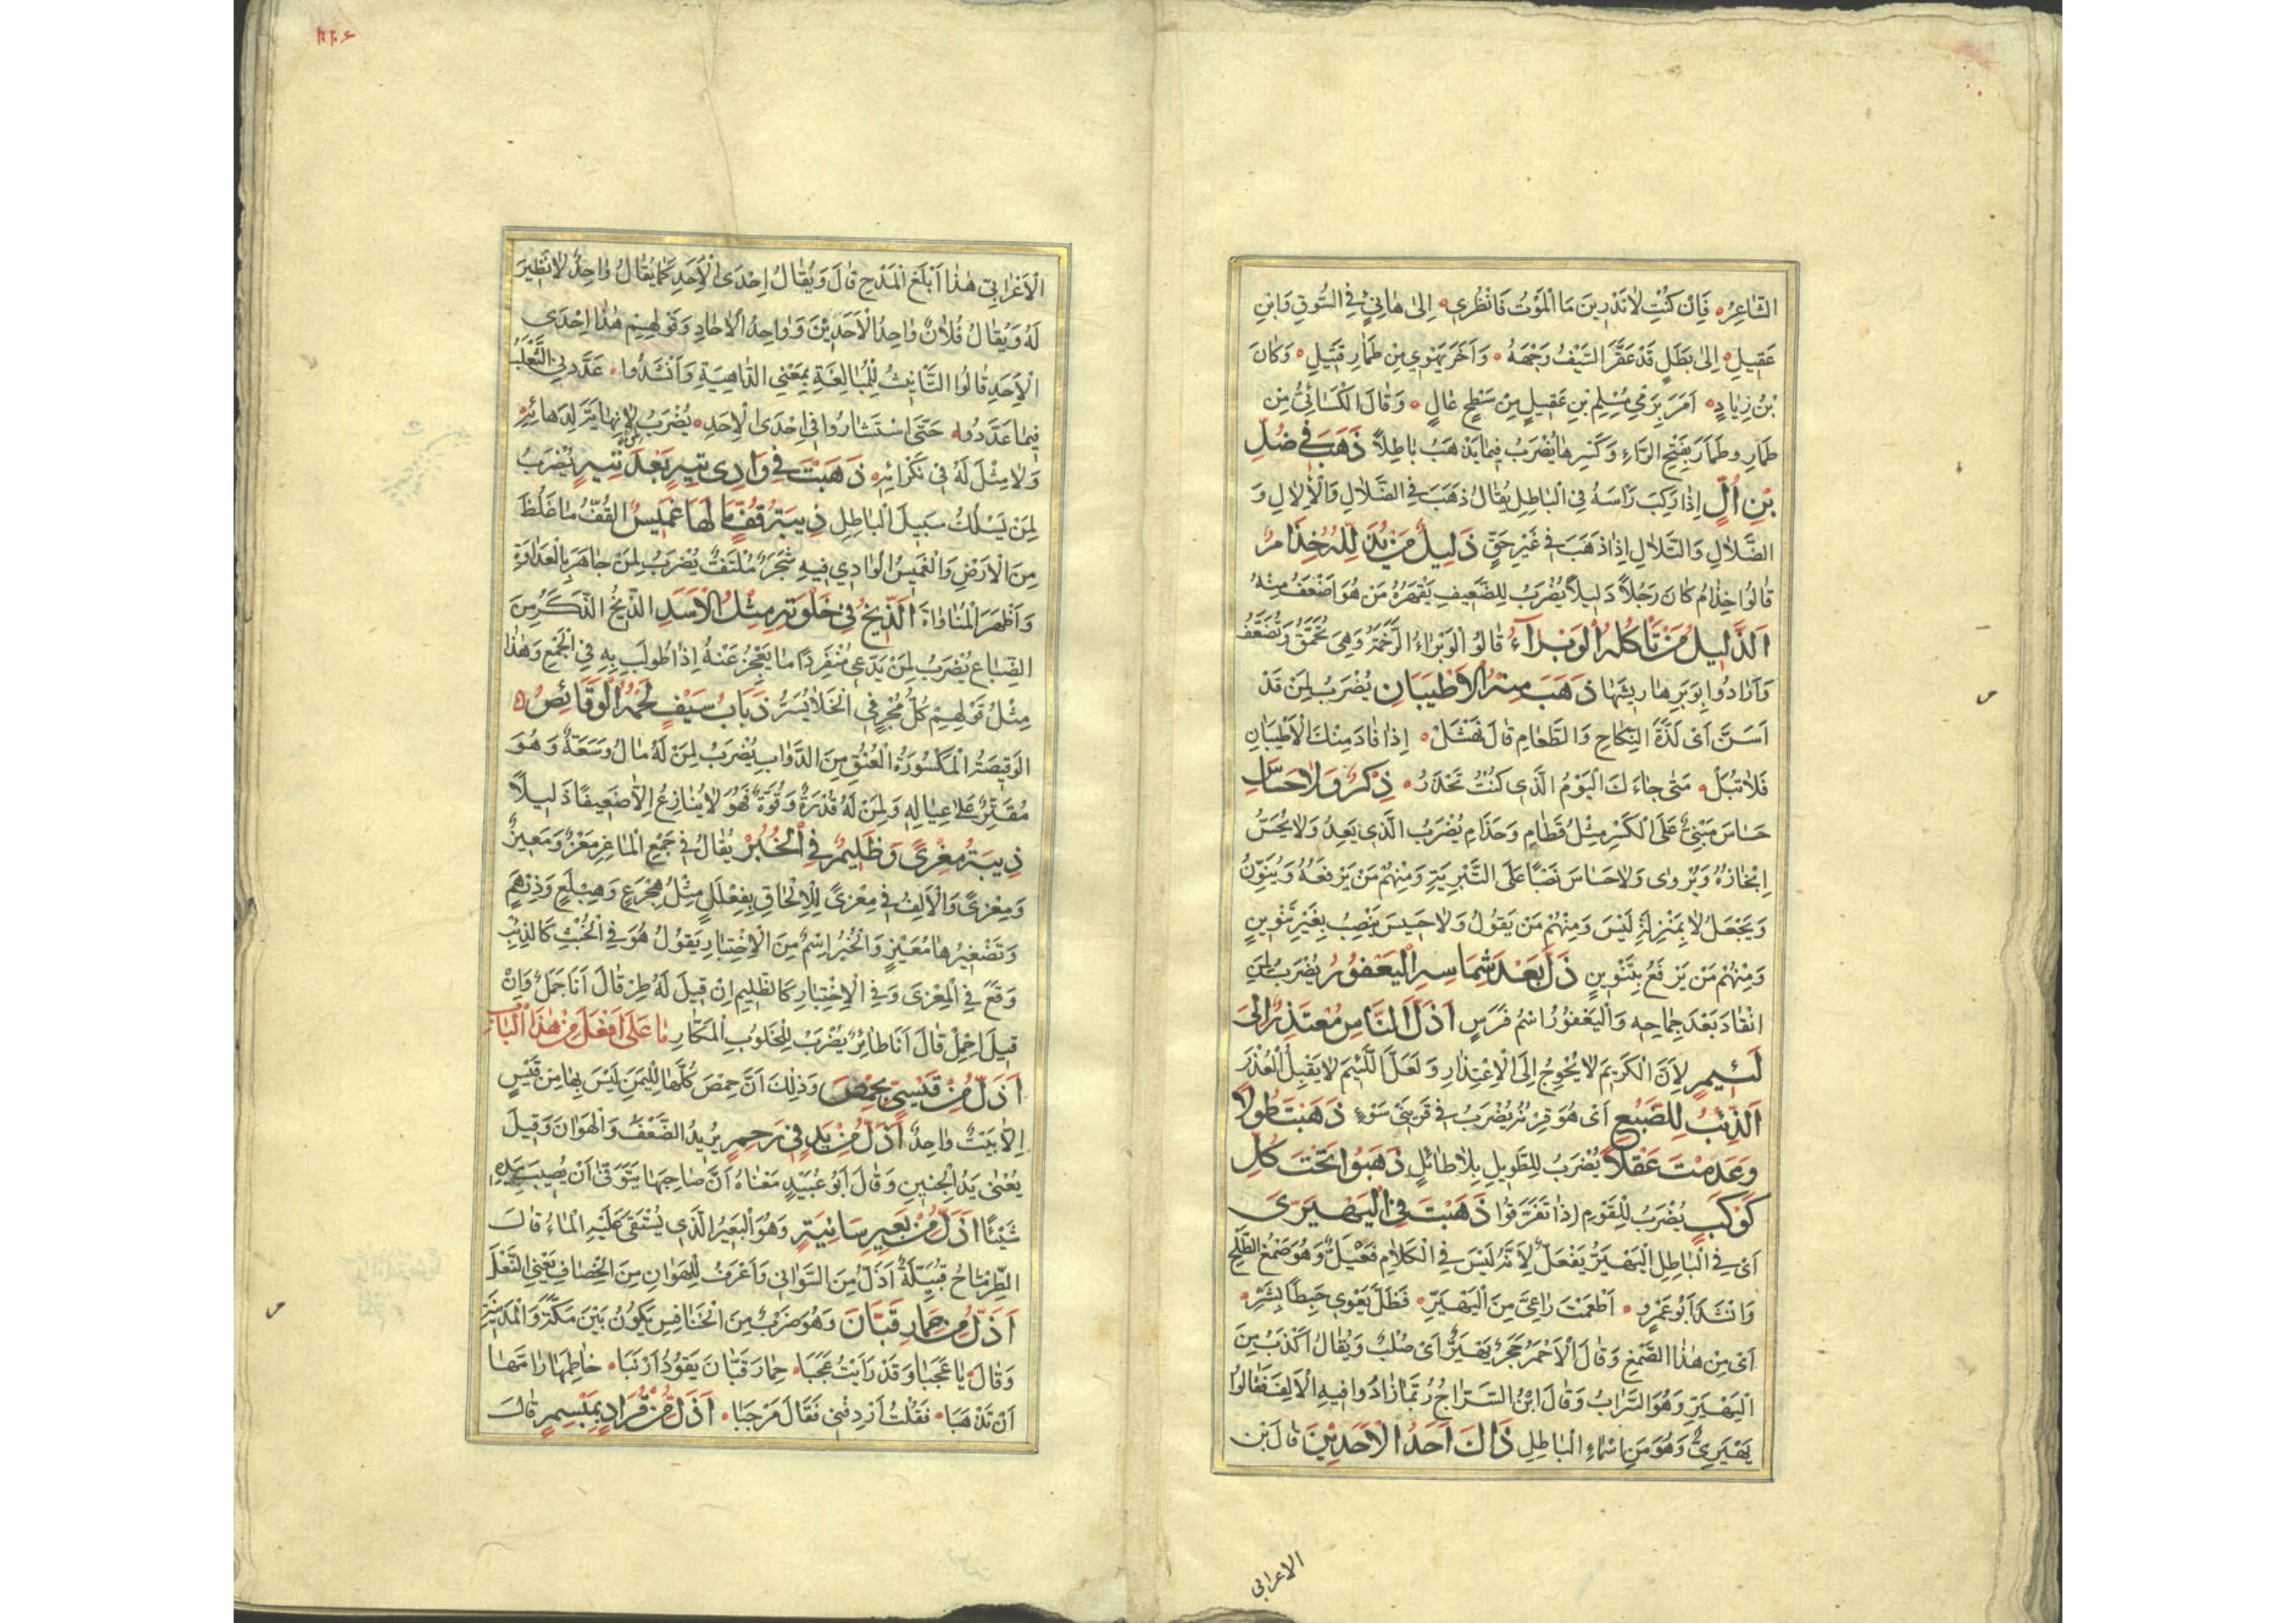 الشَّاعِرُ فَاِنْ كُنْتِ لاٰتَدْرِينَ مَا الْمَوْتُ فَانْظُرِي اِلىٰ هٰانِئٍ فِي السُّوقِ وَابْنِ
عَقِيلِ اِلىٰ بَطَلٍ قَدْعَقَّرَ السَّيْفُ وَجْهَهُ وَآخَرَ يَهْوِي مِنْ طَمَارِ قَتِيلِ وَكَانَ
بْنُ زِيٰادٍ اَمَرَ بِرَمْيِ مُسْلِمِ بْنِ عَقِيلٍ مِنْ سَطْحٍ عٰالٍ وَقٰالَ الْكَسٰائِيُّ مِنْ
طَمٰارِ وطَمٰارَ بِفَتْحِ الرّٰاءِ وَكَسْرِهٰا يُضْرَبُ فِيمٰا يَذْهَبُ بٰاطِلاً ذَهَبَ فِي ضُلِّ
بْنِ اُلٍّ اِذٰا رَكِبَ رَاْسَهُ فِي الْبٰاطِلِ يُقٰالُ ذَهَبَ فِي الضَّلاٰلِ وَالْاَلاٰلِ وَ
الضَّلاٰلِ وَالتَّلاٰلِ اِذٰا ذَهَبَ فِي غَيْرِ حَقٍّ ذَلِيلٌ مَنْ يُذَلِّلُهُ خِذَامٌ
قٰالُوا خِذٰامُ كَانَ رَجُلاً ذَلِيلاً يُضْرَبُ لِلضَّعِيفِ يَقْهَرُهُ مَنْ هُوَ اَضْعَفُ مِنْهُ
اَلذَّلِيلُ مَنْ تَأْكُلُهُ الْوَبْرَآءُ قٰالُوا الْوَبْرٰاءُ الرَّخَمَةُ وَهِيَ تُحَمَّقُ وَتُضَعَّفُ
وَاَرٰادُوا بِوَبَرِهٰا رِيشَهٰا ذَهَبَ مِنْهُ الْاَطْيَبَانِ يُضْرَبُ لِمَنْ قَدْ
اَسَنَّ اَىْ لَذَّةُ النِّكٰاحِ وَالطَّعٰامِ قٰالَ نَهْشَلْ اِذٰا فٰاتَ مِنْكَ الْاَطْيَبٰانِ
فَلاٰ تُبَلْ مَتىٰ جٰاءَكَ الْيَوْمُ الَّذِي كُنْتُ تَحْذَرُ ذِكْرٌ وَلاَ حَسَاسِ
حَسَاسَ مَبْنِيٌّ عَلَى الْكَسْرِ مِثْلُ قَطٰامِ وَحَذَامِ يُضْرَبُ الَّذِي يَعِدُ وَلاٰ يُحَسُّ
اِنْجٰازُهُ وَيُرْوٰى وَلاٰ حَسَاسَ نَصْبًا عَلَى التَّبْرِيَةِ وَمِنْهُمْ مَنْ يَرْفَعُهُ وَيُنَوِّنُ
وَيَجْعَلُ لاٰ بِمَنْزِلَةِ لَيْسَ وَمِنْهُمْ مَنْ يَقُولُ وَلاٰ حَسِيسَ يَنْصِبُ بِغَيْرِ تَنْوِينٍ
وَمِنْهُمْ مَنْ يَرْفَعُ بِتَنْوِينٍ ذَلَّ بَعْدَ شِمَاسِهِ الْيَعْفُورُ يُضْرَبُ لِمَنِ
انْقٰادَ بَعْدَ جِمٰاحِهِ وَالْيَعْفُورُ اسْمُ فَرَسٍ اَذَلُّ النَّاسِ مُعْتَذِرٌ اِلىٰ
لَئِيمٍ لِاَنَّ الْكَرِيمَ لاٰ يُحْوِجُ اِلَى الْاِعْتِذٰارِ وَلَعَلَّ اللَّئِيمَ لاٰ يَقْبَلُ الْعُذْرَ
اَلذِّئْبُ لِلضَّبُعِ اَىْ هُوَ قِرْنُهُ يُضْرَبُ فِي قَرِينَيْ سَوْءٍ ذَهَبْتَ طُولاً
وَعَدِمْتَ عَقْلاً يُضْرَبُ لِلطَّوِيلِ بِلاٰ طٰائِلٍ ذَهَبُوا تَحْتَ كُلِّ
كَوْكَبٍ يُضْرَبُ لِلْقَوْمِ اِذٰا تَفَرَّقُوا ذَهَبْتَ فِي الْيَهْيَرَّى
اَىْ فِي الْبٰاطِلِ الْيَهْيَرُّ يَفْعَلُّ لِاَنَّهُ لَيْسَ فِي الْكَلاٰمِ فَعْيَلٌّ وَهُوَ صَمْغُ الطَّلْحِ
وَانْشَدَ اَبُو عَمْرٍو اَطْعَمْتُ رٰاعِيَّ مِنَ الْيَهْيَرِّ فَظَلَّ يَعْوِي حَبِطًا بِشَرٍّ
اَىْ مِنْ هٰذَا الصَّمْغِ وَقٰالَ الْاَحْمَرُ حَجَرٌ يَهْيَرٌّ اَىْ صُلْبٌ وَيُقٰالُ اَكْذَبُ مِنَ
الْيَهْيَرِّ وَهُوَ السَّرٰابُ وَقٰالَ ابْنُ السَّرّٰاجِ رُبَّمٰا زٰادُوا فِيهِ الْاَلِفَ فَقٰالُوا
يَهْيَرّٰى وَهُوَ مِنْ اَسْمٰاءِ الْبٰاطِلِ ذَاكَ اَحَدُ الْاَحَدِيْنَ قٰالَ بْنُ
الاعرابي
الْاَعْرٰابِيِّ هٰذٰا اَبْلَغُ الْمَدْحِ قٰالَ وَيُقٰالُ اِحْدَى الْاِحَدِ كَمٰا يُقٰالُ وٰاحِدٌ لاٰ نَظِيرَ
لَهُ وَيُقٰالُ فُلاٰنٌ وٰاحِدُ الْاَحَدِيْنَ وَوٰاحِدُ الْاٰحٰادِ وَقَوْلُهُمْ هٰذٰا اِحْدَى
الْاِحَدِ قٰالُوا التَّانِيثُ لِلْمُبٰالَغَةِ بِمَعْنَى الدّٰاهِيَةِ وَاَنْشَدُوا عَدَّنِي الثَّعْلَبُ
فِيمٰا عَدَّدُوا حَتَّى اسْتَشٰارُوا فِي اِحْدَى الْاِحَدِ يُضْرَبُ لِمَنْ لاٰ نِهٰايَةَ لِدَهٰائِهِ
وَلاٰ مِثْلَ لَهُ فِي نَكْرٰائِهِ ذَهَبْتَ فِي وَادِي تِيهٍ بَعْدَ تِيهٍ يُضْرَبُ
لِمَنْ يَسْلُكُ سَبِيلَ الْبٰاطِلِ ذِيبَةُ قُفٍّ مَا لَهَا غَمِيسُ الْقُفُّ مٰا غَلُظَ
مِنَ الْاَرْضِ وَالْغَمِيسُ الْوٰادِي فِيهِ شَجَرٌ مُلْتَفٌّ يُضْرَبُ لِمَنْ جٰاهَرَ بِالْعَدٰاوَةِ
وَاَظْهَرَ الْمُنٰاوٰاةَ اَلذِّيخُ فِي خَلْوَتِهِ مِثْلُ الْاَسَدِ الذِّيخُ الذَّكَرُ مِنَ
الضِّبٰاعِ يُضْرَبُ لِمَنْ يَدَّعِي مُنْفَرِدًا مٰا يَعْجِزُ عَنْهُ اِذٰا طُولِبَ بِهِ فِي الْجَمْعِ وَهٰذٰا
مِثْلُ قَوْلِهِمْ كُلُّ مُجْرٍ فِي الْخَلاٰءِ يُسَرُّ ذُبَابُ سَيْفٍ لَحْمُهُ الْوَقَائِصُ
الْوَقِيصَةُ الْمَكْسُورَةُ الْعُنُقِ مِنَ الدَّوٰابِ يُضْرَبُ لِمَنْ لَهُ مٰالٌ وَسَعَةٌ وَهُوَ
مُقَتِّرٌ عَلىٰ عِيٰالِهِ وَلِمَنْ لَهُ قُدْرَةٌ وَقُوَّةٌ فَهُوَ لاٰ يُنٰازِعُ اِلاّٰ ضَعِيفًا ذَلِيلاً
ذِيبَةُ مِعْزًى وَظَلِيمٌ فِي الْخُبْرِ يُقٰالُ فِي جَمْعِ الْمٰاعِزِ مَعْزٌ وَمَعِيزٌ
وَمِعْزًى وَالْاَلِفُ فِي مِعْزًى لِلْاِلْحٰاقِ بِفِعْلَلٍ مِثْلُ هِجْرَعٍ وَهِبْلَعٍ وَدِرْهَمٍ
وَتَصْغِيرُهٰا مُعَيْزٍ وَالْخُبْرُ اِسْمٌ مِنَ الْاِخْتِبٰارِ يَقُولُ هُوَ فِي الْخُبْثِ كَالذِّئْبِ
وَقَعَ فِي الْمِعْزىٰ وَفِي الْاِخْتِبٰارِ كَالظَّلِيمِ اِنْ قِيلَ لَهُ طِرْ قٰالَ اَنَا جَمَلٌ وَاِنْ
قِيلَ احْمِلْ قٰالَ اَنَا طٰائِرٌ يُضْرَبُ لِلْخَلُوبِ الْمَكّٰارِ مٰا عَلَى اَفْعَلَ مِنْ هٰذَا الْبَابِ
اَذَلُّ مِنْ قَيْسِيٍّ بِحِمْصَ وَذٰلِكَ اَنَّ حِمْصَ كُلَّهٰا لِلْيَمَنِ لَيْسَ بِهٰا مِنْ قَيْسٍ
اِلاّٰ بَيْتٌ وٰاحِدٌ اَذَلُّ مِنْ يَدٍ فِي رَحِمٍ يُرِيدُ الضَّعْفَ وَالْهَوٰانَ وَقِيلَ
يُعْنىٰ يَدُ الْجَنِينِ وَقٰالَ اَبُو عُبَيْدٍ مَعْنٰاهُ اَنَّ صٰاحِبَهٰا يَتَوَقّٰى اَنْ يُصِيبَ بِيَدِهِ
شَيْئًا اَذَلُّ مِنْ بَعِيرِ سَانِيَةٍ وَهُوَ الْبَعِيرُ الَّذِي يُسْتَقىٰ عَلَيْهِ الْمٰاءُ قٰالَ
الطِّرِمّٰاحُ قُبَيِّلَةٌ اَذَلُّ مِنَ السَّوٰانِي وَاَعْرَفُ لِلْهَوٰانِ مِنَ الْخِصٰافِ يَعْنِي النَّعْلَ
اَذَلُّ مِنْ حِمَارِ قَبَّانَ وَهُوَ ضَرْبٌ مِنَ الْخَنٰافِسِ يَكُونُ بَيْنَ مَكَّةَ وَالْمَدِينَةِ
وَقٰالَ يٰا عَجَبٰا وَقَدْ رَاَيْتُ عَجَبًا حِمٰارَ قَبّٰانَ يَقُودُ اَرْنَبًا خٰاطِمَهٰا زٰامَّهٰا
اَنْ تَذْهَبَا فَقُلْتُ اَرْدِفْنِي فَقٰالَ مَرْحَبًا اَذَلُّ مِنْ قُرَادٍ بِمَنْسِمٍ قٰالَ